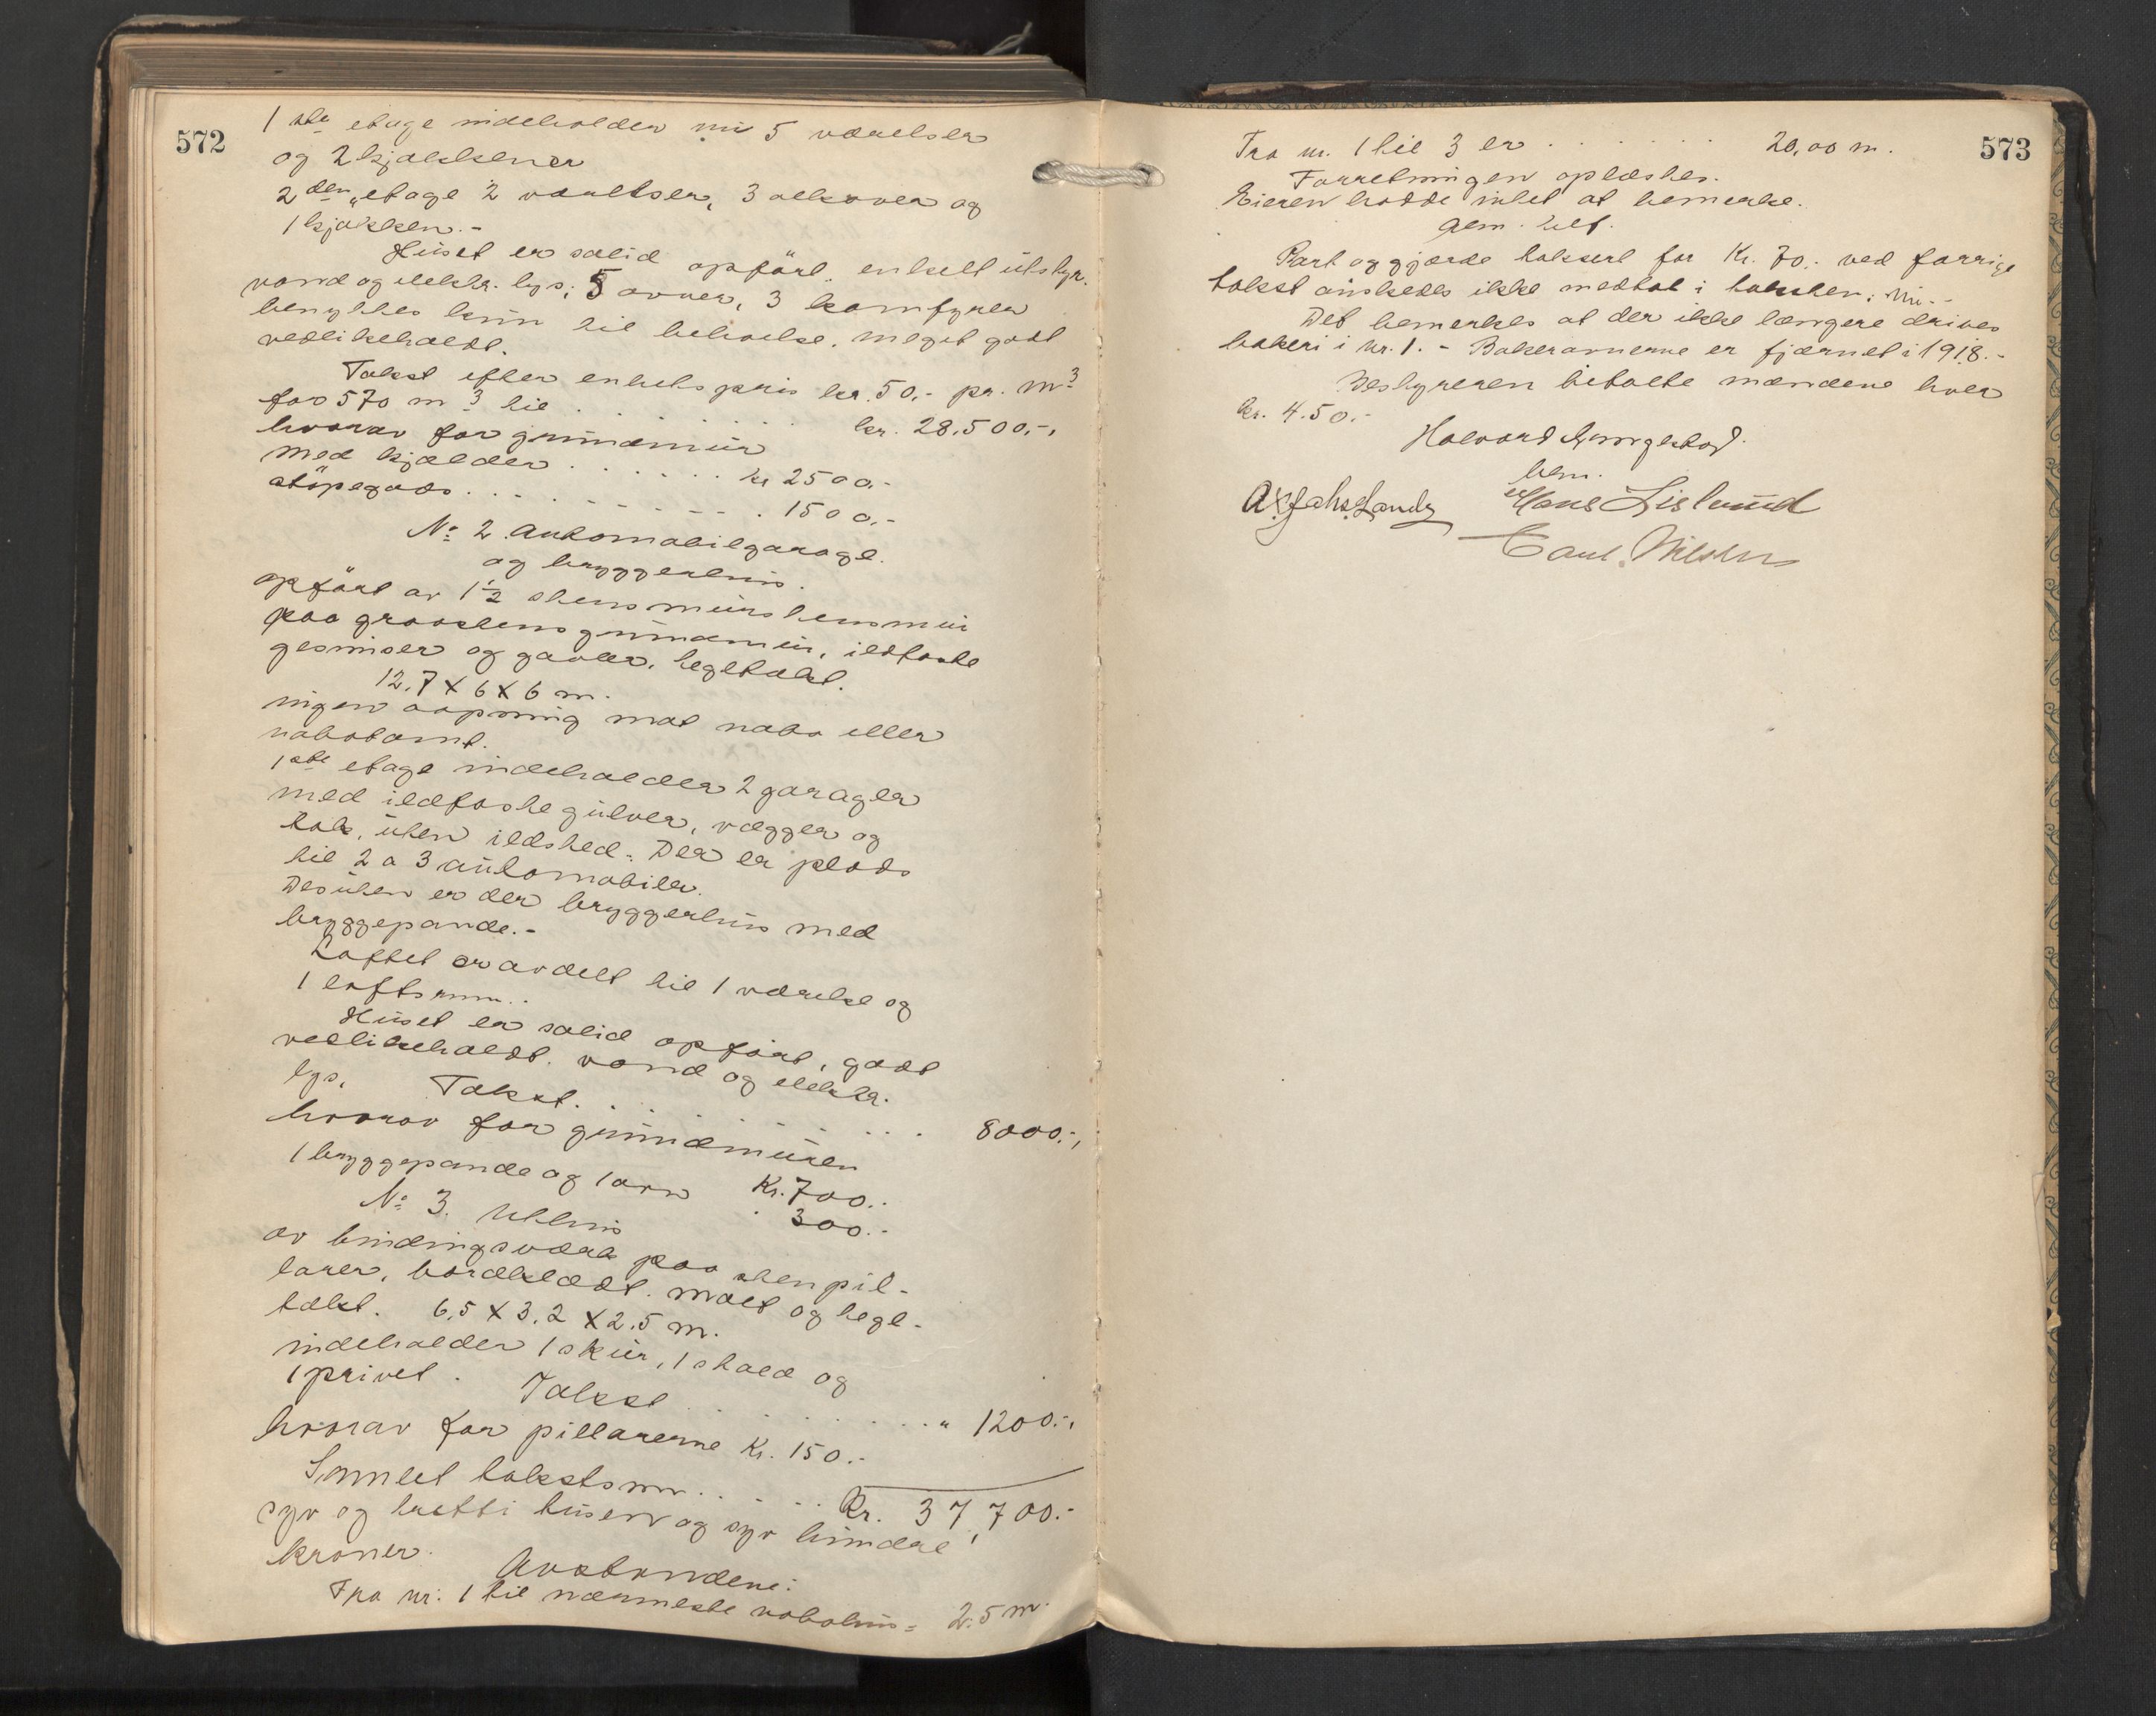 572
1ste etage indeholder nu 5 værelser
og 2 kjøkkener
2den etage 2 værelser, 3 alkover og
1 kjøkken.-
Huset er solid opført. enkelt utstyr.
vand og elektr. lys, 5 ovner, 3 komfyrer
benyttes kun til beboelse. meget godt
vedlikeholdt.
Takst efter enhetspris kr. 50,- pr. m3
for 570 m3 til . . . . . . kr. 28.500.-,
hvorav for grundmur
med kjælder . . . . . . kr 2500.-
støpegods . . . . . . . . 1500.-
No 2. Automobilgarage.
og bryggerhus.
opført av 1½ stens murstensmur
paa graastens grundmur, ildfaste
gesimser og gavler. teglTækt.
12.7 x 6 x 6 m.
ingen aapning mot nabo eller
nabotomt.
1ste etage indeholder 2 garager
med ildfaste gulver, vægger og
tak, uten ildsted. Der er plads
til 2 a 3 automobiler.
Desuten er der bryggerhus med
bryggepande.-
Loftet er avdelt til 1 værelse og
1 loftsrum..
Huset er solid opført, godt
vedlikeholdt. vand og elektr.
lys. Takst. . . . . . . . . 8000.-,
hvorav for grundmuren
Kr. 700.-
1 bryggepande og 1 ovn . 300.-
No 3. Uthus
av bindingsverk paa stenpil-
larer, bordklædt. malt og tegl-
tækt. 6,5 x 3.2 x 2.5 m.
indeholder 1 skur, 1 stald og
1 privet. Takst . . . . . . . . " 1200.-,
hvorav for pillarerne Kr. 150.-
Samlet takstsum . . . . . Kr. 37,700.-
syv og tretti tusen og syv hundre
kroner.
Avstandene:
Fra nr. 1 til nærmeste nabohus = 2.5 m.
573
Fra nr. 1 til 3 er . . . . . . . 20,00 m.
Forretningen oplæstes.
Eieren hadde intet at bemerke.
Port og gjærde taksert for Kr. 70.- ved forrige
takst ønskedes ikke medtat i taksten. nu.-
Det bemerkes at der ikke længere drives
bakeri i nr. 1. - Bakerovnerne er fjærnet i 1918.-
Bestyreren betalte mændene hver
kr. 4.50.-
Halvard
Hans Lislund
Carl. Nilsen